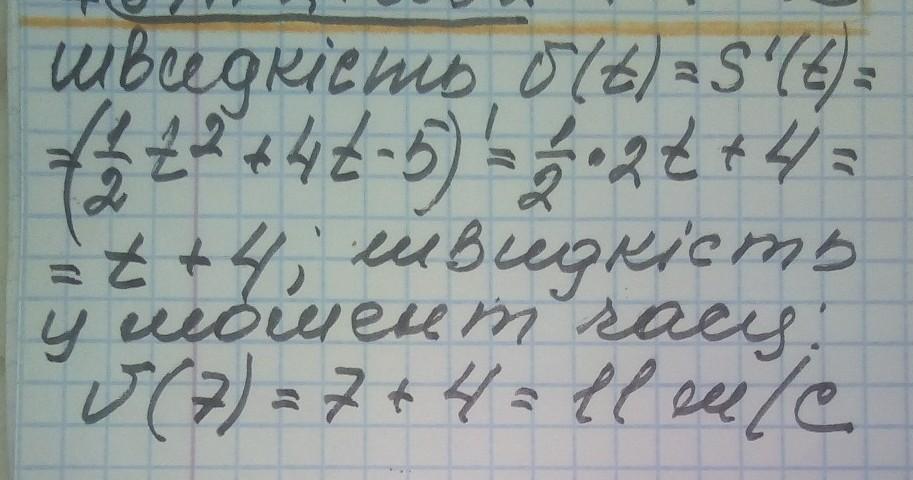 швидкість v(t) = S'(t) =
= (1/2 t² + 4t - 5)' = 1/2 • 2t + 4 =
= t + 4; швидкість
у момент часу:
v(7) = 7 + 4 = 11 м/с